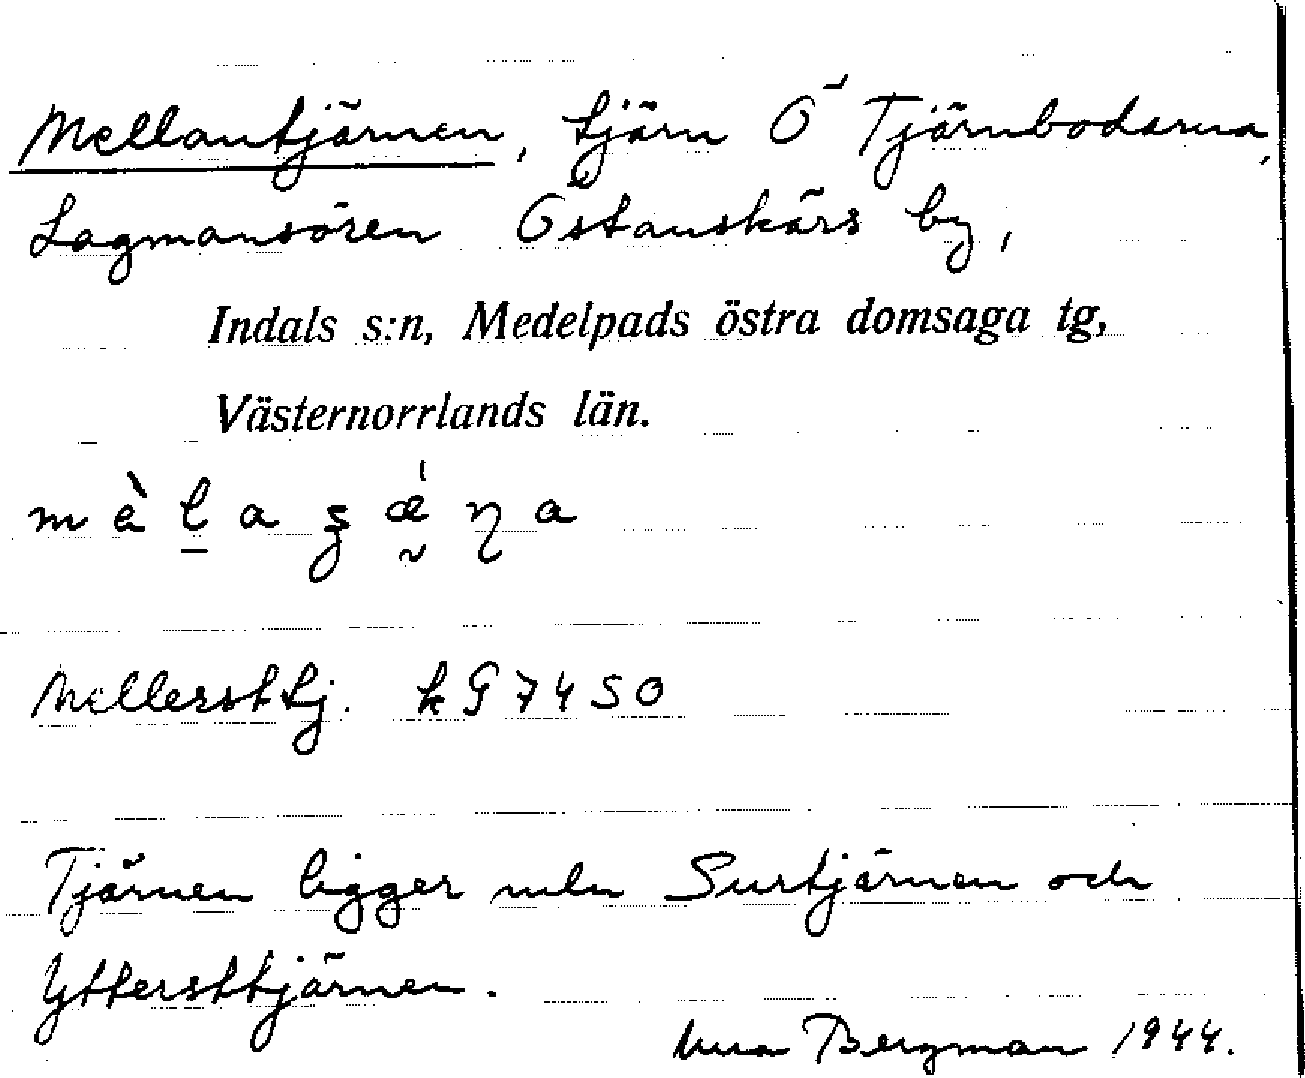 Mellantjärnen, tjärn Ö Tjärnbodarna,
Lagmansören Östanskärs by,
Indals s:n, Medelpads östra domsaga tg,
Västernorrlands län.
Mellersttj. kG 7450
Tjärnen ligger mln Surtjärnen och
Yttersttjärnen.
Bergman 1944.